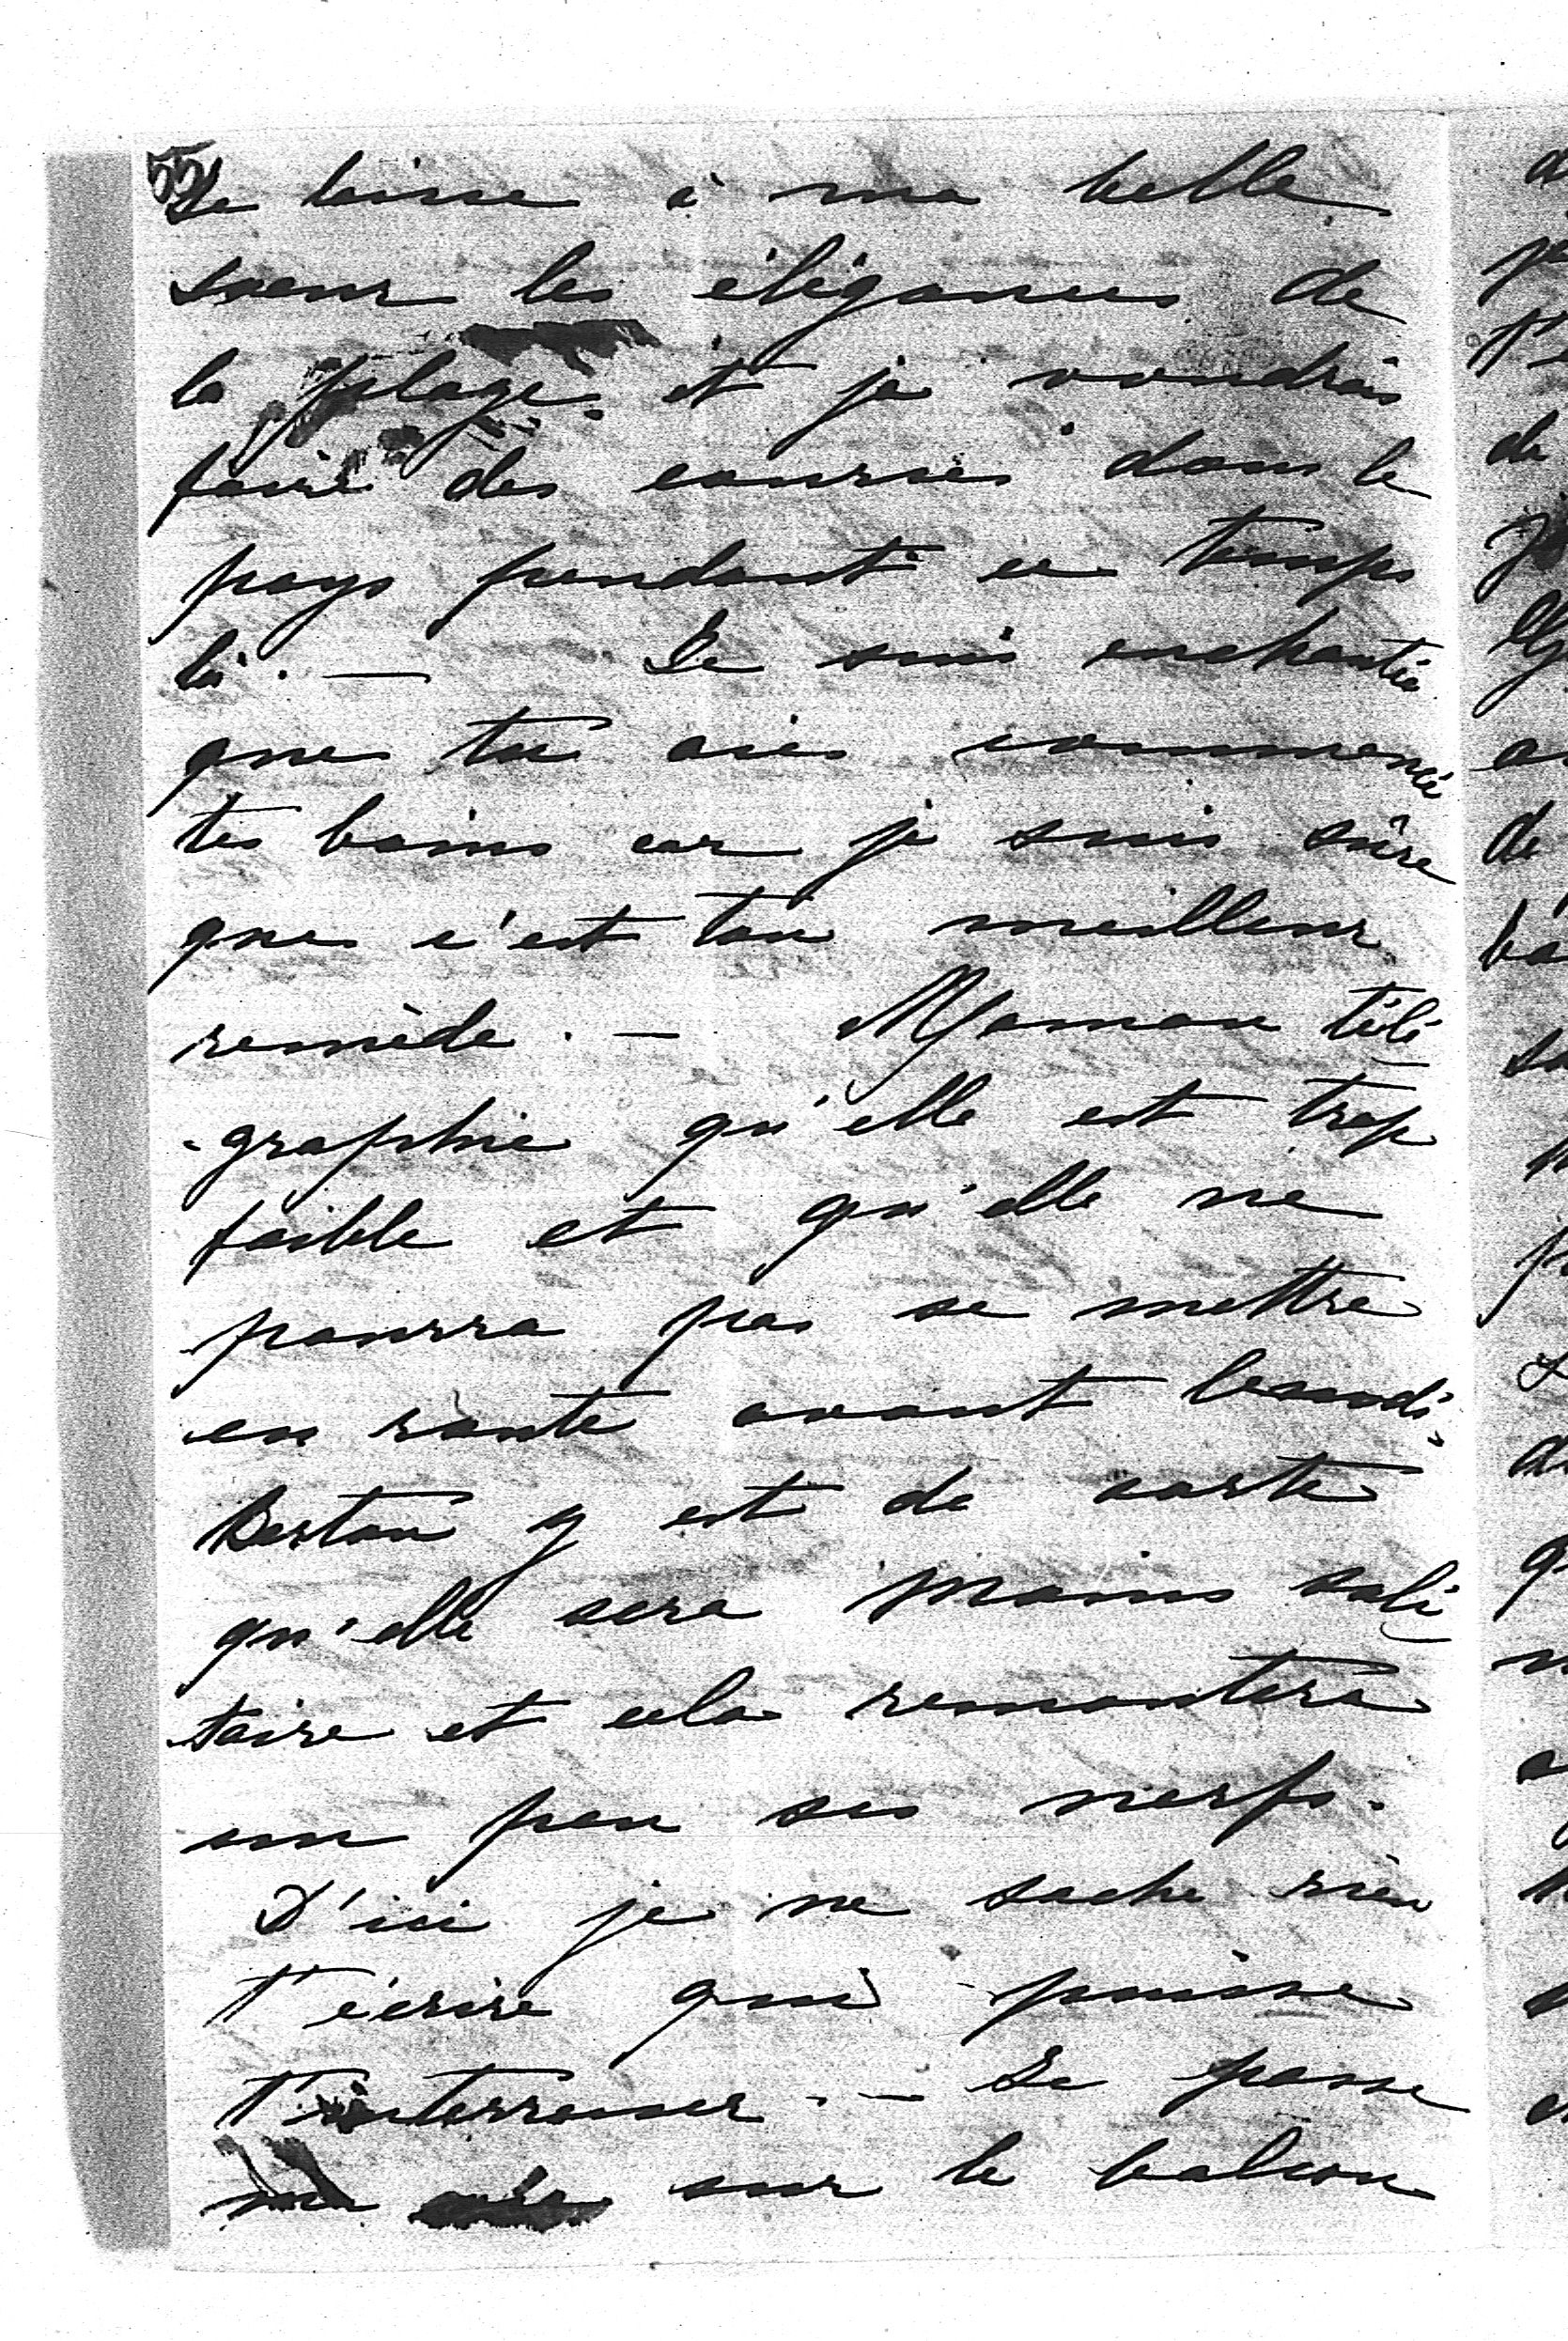 55
Je laisse à ma belle
soeur les élégances de
la plage et je voudrais
faire des courses dans le
pays pendant ce temps
là. — Je suis enchantée
que tu aies commencé
tes bains car je suis sûre
que c'est ton meilleur
remède. — Maman télé
-graphie qu'elle est trop
faible et qu'elle ne
pourra pas se mettre
en route avant lundi.
Berton y est de sorte
qu'elle sera moins soli
taire et cela remontera
un peu ses nerfs.
D'ici je ne sache rien
t'écrire qui puisse
t'interresser. — Je passe
ma vie sur le balcon